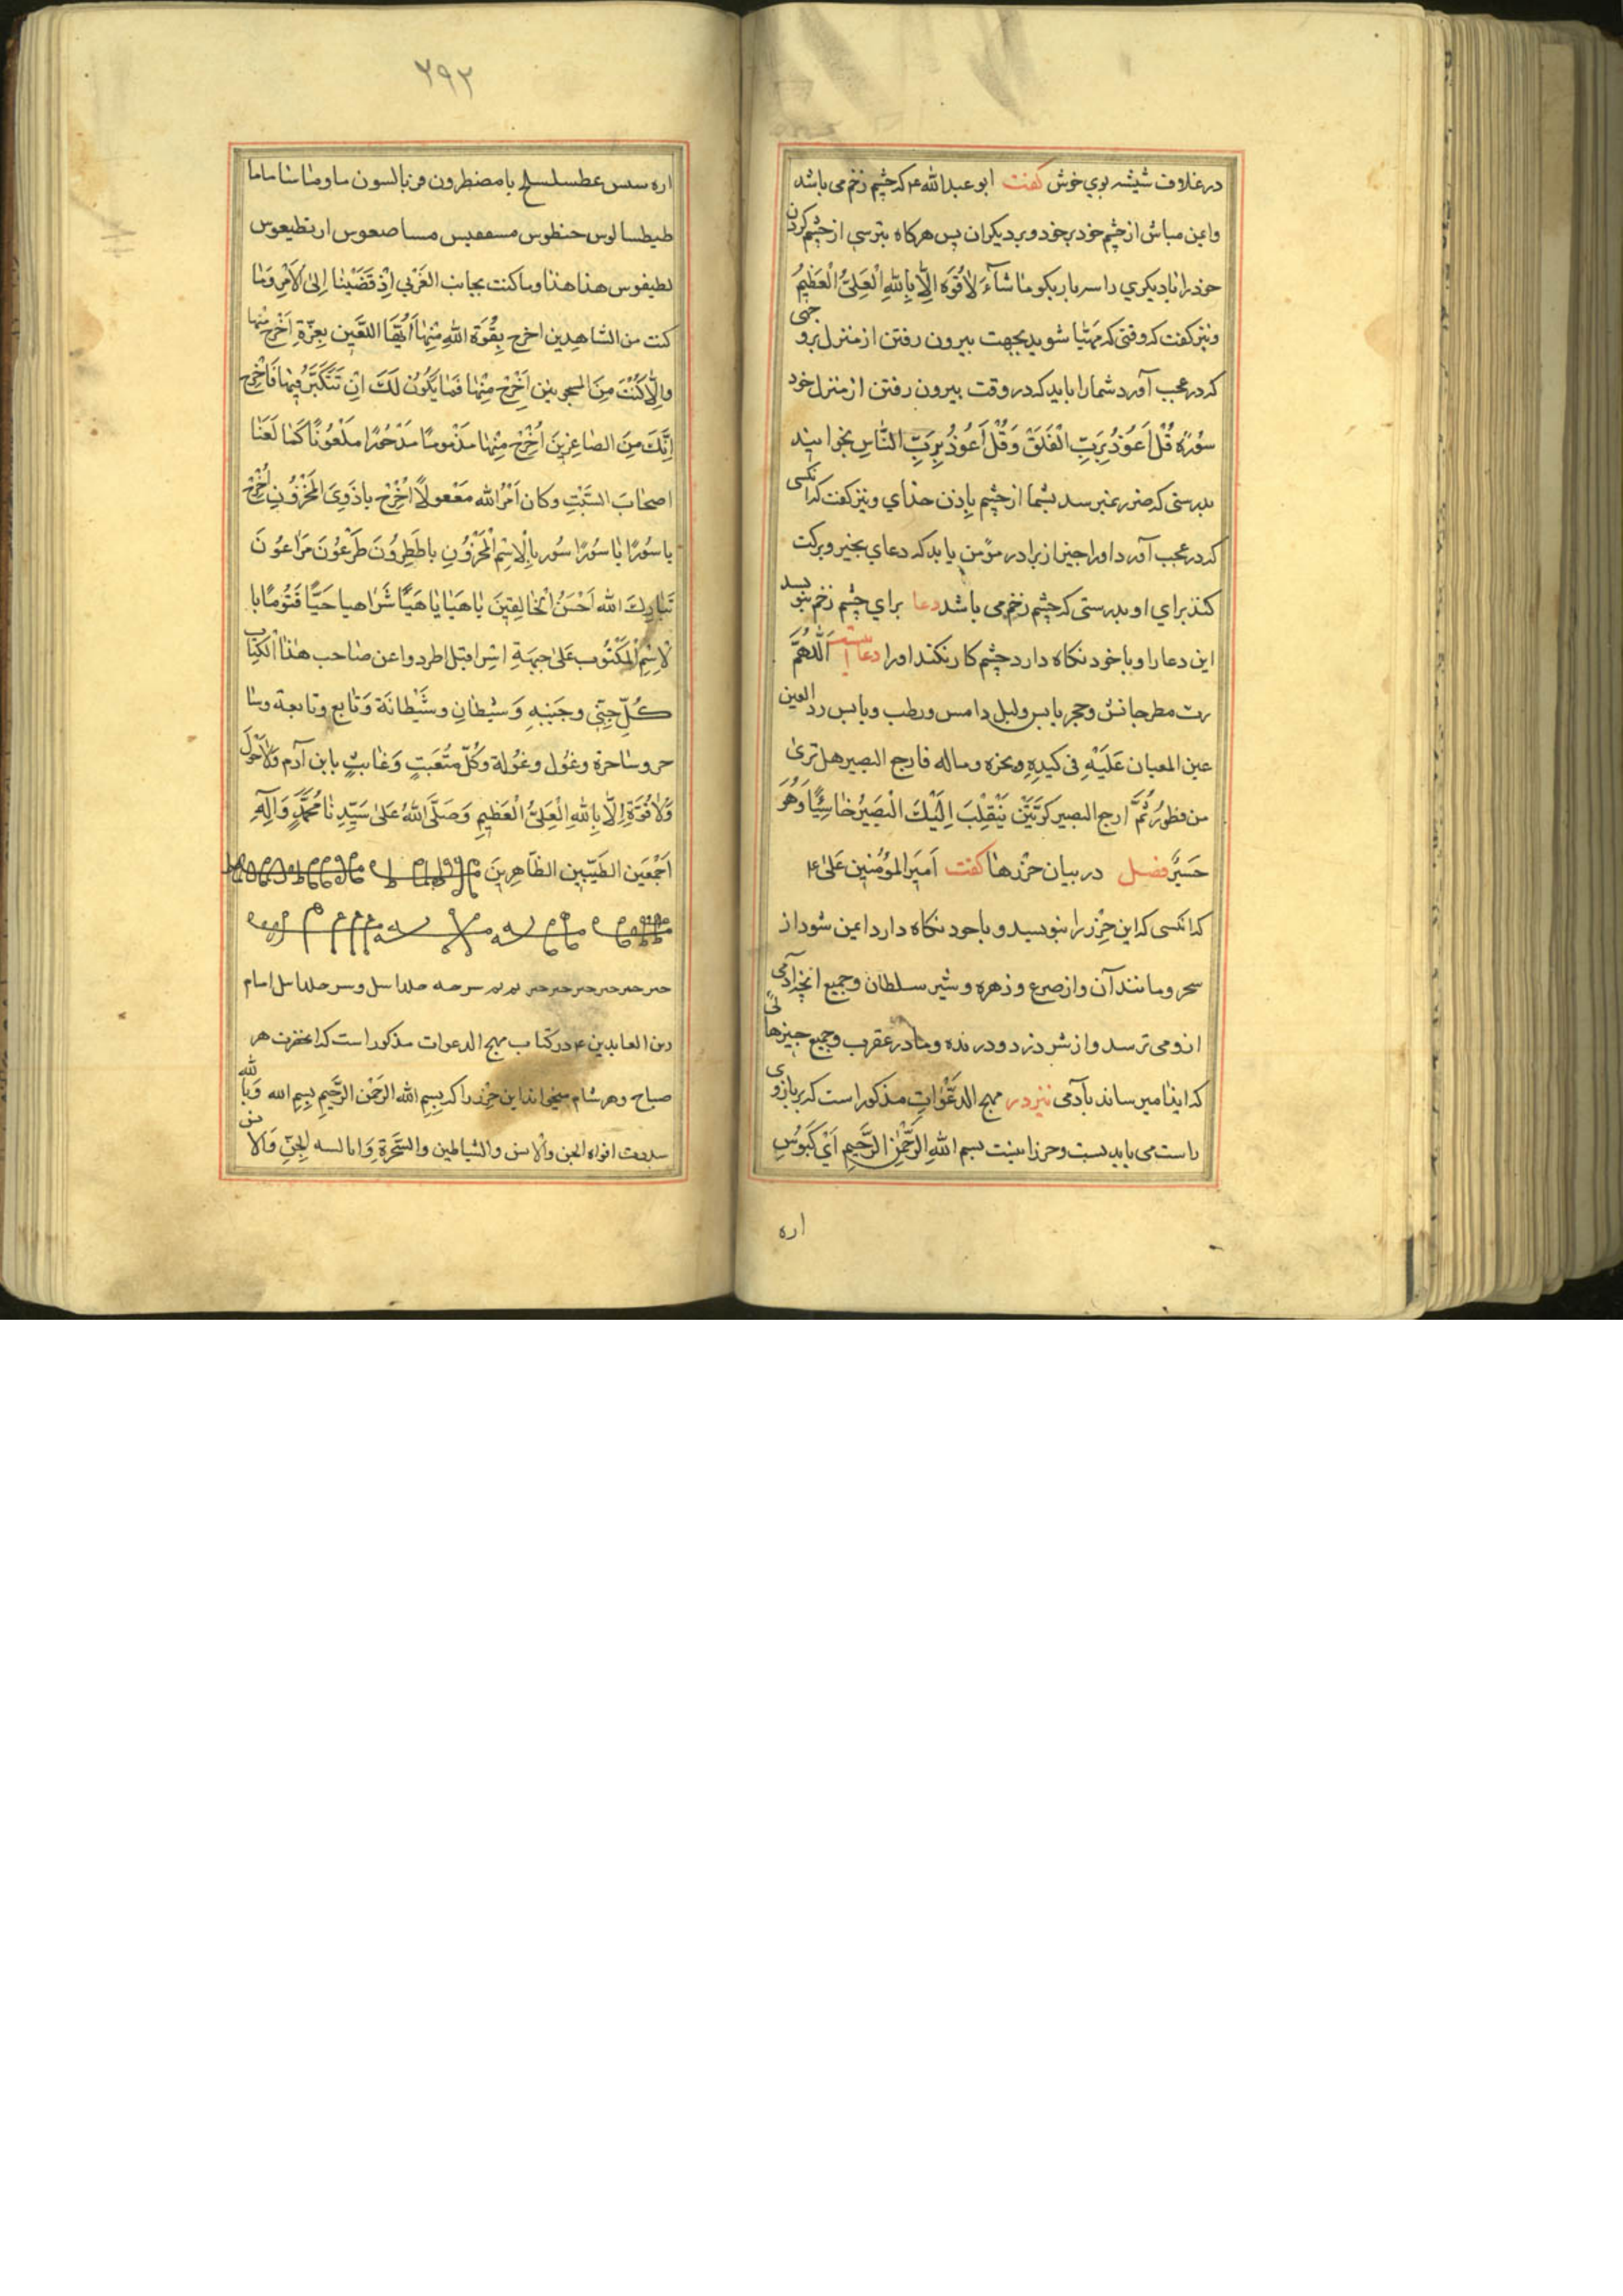 در غلاف شیشه بوی خوش کفت ابو عبدالله ع که چشم زخم می باشد
وایمن مباش از چشم خود بر خود و بر دیکران پس هرکاه بترسی از چشم کردن
خود را یا دیکری را سه بار بکو مَا شآءَ لاٰ قُوَهَ اِلّاٰ بِاللهِ الْعَلِیُّ الْعَظیمُ
ونیز کفت که وقتی که مهیّا شوید بجهت بیرون رفتن از منزل برو جهی
که در عجب آورد شما را باید که در وقت بیرون رفتن از منزل خود
سُورَه قُلْ اَعُوذُ بِرَبِّ الْفَلَقْ وَقُلْ اَعُوذُ بِرَبِّ النّاسِ بخوانید
بدرستی که ضرر نمیرسد بشما از چشم بِاِذن خدای ونیز کفت که انکسی
که در عجب آورد اورا چیزی از برادر مؤمن باید که دعای بخیر و برکت
کند برای او بدرستی که چشم زخم می باشد دعا برای چشم زخم بنویسد
این دعا را و با خود نکاه دارد چشم کار نکند اورا دعا اینست اَللّٰهُمَّ
رب مطر حابس وحجر یابس ولیل دامس ورطب ویابس رد العین
عین المعیان عَلَیْهِ فی کَیدِهِ ونحزه وماله فارجع البصیر هل تری
من فطورُ ثُمَّ ارجع البصیر کَرَّتَیْن یَنْقِلْبَ اِلَیْكَ الْبَصَیرُ خٰاسِئًا وَهُوَ
حَسیرُ فصل در بیان حرزها کفت اَمیرَالمؤمنین عَلیٰ ع
که انکسی که این حِرْز را بنویسد و با خود نکاه دارد ایمن شود از
سحر و مانند آن و از صرع و زهره و شیر سلطان و جمیع انچه آدمی
از و می ترسد و از شر دزد و درنده و مار و عقرب و جمیع چیزهائی
که ایذا میرساند بآدمی نیز در مهج الدعَوات مذکور است که بر بازوی
راست می باید بست و حرز اینست بسم اللهِ الرَّحْمٰنِ الرَّحیمِ اَیْ کَبُوسِ
اره
۲۹۲
طیطسالوس حنطوس مسفقیس مساصعوس
لطیفوس هذا هذا وما کنت بجانب الغَرْبی اِذْ قَضَیْنا اِلیٰ الاَمْرِ وَمٰا
کنت من الشاهدین اخرج بِقُوَة اللهِ مِنْهٰا اَیُّهَا اللعَین بِعِزّةِ اَخْرج مِنْها
واِلّا کُنْتَ مِنَ المسجونین اَخْرِجْ مِنْهٰا فَمٰا یَکُونُ لَكَ اَنْ تَتَکَبَّرُ فِیهٰا فَاخْرِج
اِنَّكَ مِنَ الصّاغِرینَ اُخْرُجْ مِنْهٰا مَذْمومًا مَدْحُورًا مَلْعُونًا کَمٰا لَعَنٰا
اصحٰابَ السَّبْتِ وکان اَمْرُ الله مَفْعولًا اُخْرُجْ یا ذَوِیَ الْمَخْزُونِ اُخْرُجْ
یا سُورًا یٰا سُورًا سُور بِاِلْاِسْمِ الْمَخْزُونِ یا طَطِرُونَ طَرْعُونَ مَرٰاعُونَ
تَبٰارِكَ الله اَحْسَنُ الْخٰالِقینَ یٰا هَیٰا یٰا هَیًّا شَرٰاهیا حَیًّا قَیُّومًا با
لْاِسْمِ الْمَکْتُوبِ عَلیٰ جبهَةِ اِسْرافیل اطردوا عن صٰاحب هٰذَا الْکِتٰاب
کُلِّ جِنّیٍ وجَنیهِ وَشیْطانِ وشَّیْطانَة وَتٰابِعِ وتابعة وسٰا
حر وسٰاحرة وغُول وغُولة وَکُلِّ مُتَعَبِتٍ وَعٰابِثٍ بابن آدم وَلاٰحَوْلَ
وَلاٰ قُوَّةَ اِلّا بِاللهِ الْعَلیُّ الْعَظیمِ وَصَلَّی اللهُ عَلیٰ سَیِّدِنٰا مُحَمَّدٍ وَآلِهِ
اَجْمَعَینِ الطَیّبین الطّاهِرینَ
ین العابدین ع در کتاب مهج الدعوات مذکور است که انحضرت هر
صباح و هر شام میخواند این حِرْز را که بِسِمِ الله الرَحْمٰنِ الرَّحیمِ بِسِمِ الله وَبِاللهِ
سددت افواه الجن وَالْاِنس والشیاطین والسَّحَرَةِ وَابالسه لْجِنّ وَالْا نس